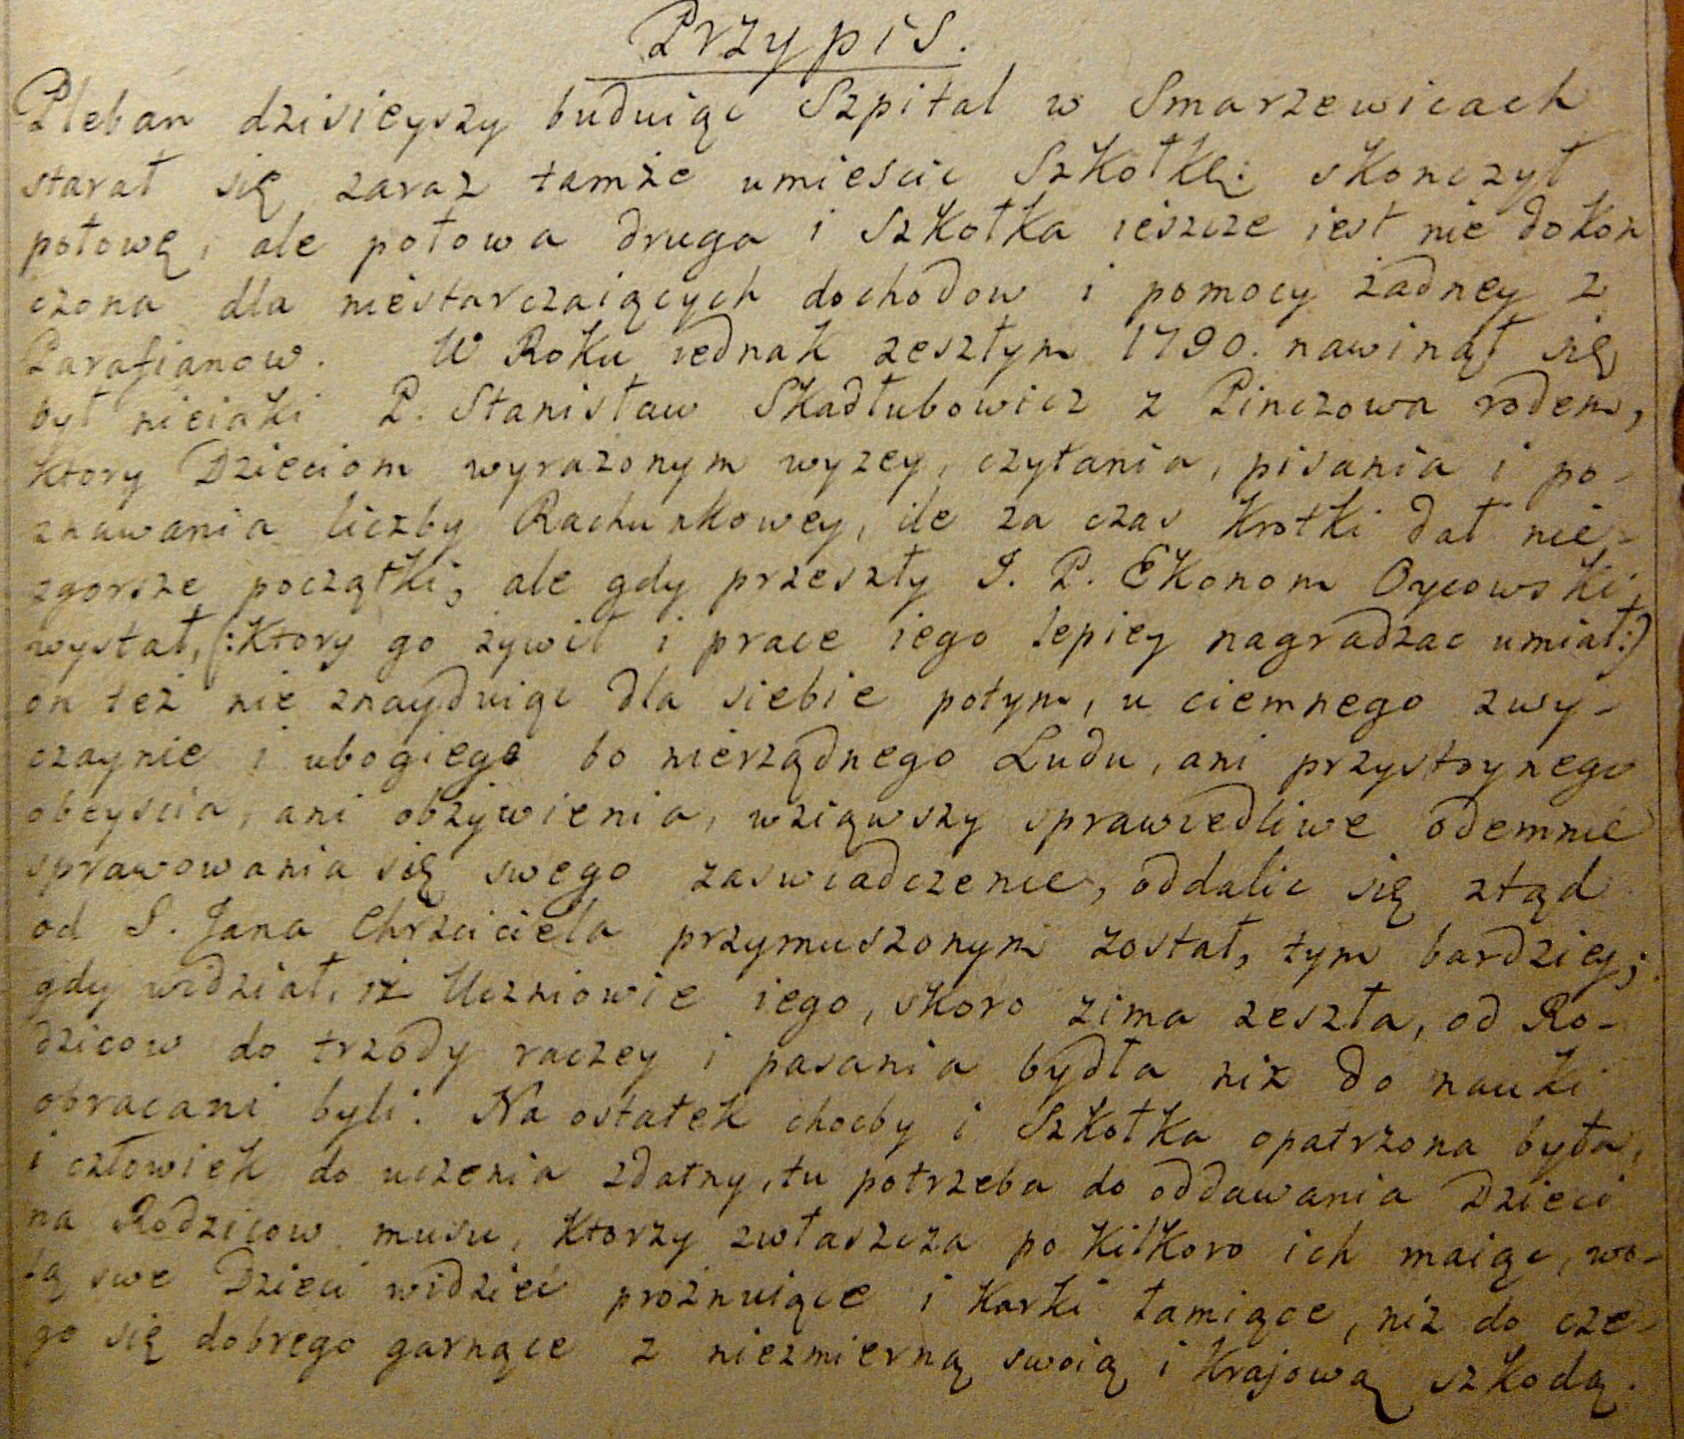 Przypis.
Pleban dzisieyszy buduiąc Szpital w Smarzewicach
starał się zaraz tamże umieścic Szkołkę: skonczył
połowę, ale połowa druga i Szkołka ieszcze iest nie dokon
czona dla niestarczaiących dochodow i pomocy żadney z
Parafianow. W Roku iednak zeszłym 1790. nawinął się
był nieiaki P. Stanisław Skadłubowicz z Pinczowa rodem,
ktory Dzieciom wyrażonym wyzey, czytania, pisania i po-
znawania liczby Rachunkowey, ile za czas krotki dał nie-
zgorsze początki, ale gdy przeszły J. P. Ekonom Oycowski
wystał, (:ktory go żywił i prace iego lepiey nagradzac umiał:)
on też nie znayduiąc dla siebie potym, u ciemnego zwy-
czaynie i ubogiego bo nierządnego Ludu, ani przystoynego
obeyścia, ani obżywienia, wziąwszy sprawiedliwe odemnie
sprawowania się swego zaswiadczenie, oddalic się ztąd
od S. Jana Chrzciciela przymuszonym został, tym bardziey;
gdy widział, iż Uczniowie iego, skoro zima zeszła, od Ro-
dzicow do trzody raczey i pasania bydła niż do nauki
obracani byli. Na ostatek chocby i Szkołka opatrzona była,
i człowiek do uczenia zdatny, tu potrzeba do oddawania Dzieci
na Rodzicow musu, ktorzy zwłaszcza po kilkoro ich maiąc, wo-
lą swe Dzieci widzieć prożnuiące i karki łamiące, niż do cze-
go się dobrego garnące z niezmierną swoią i krajową szkodą.